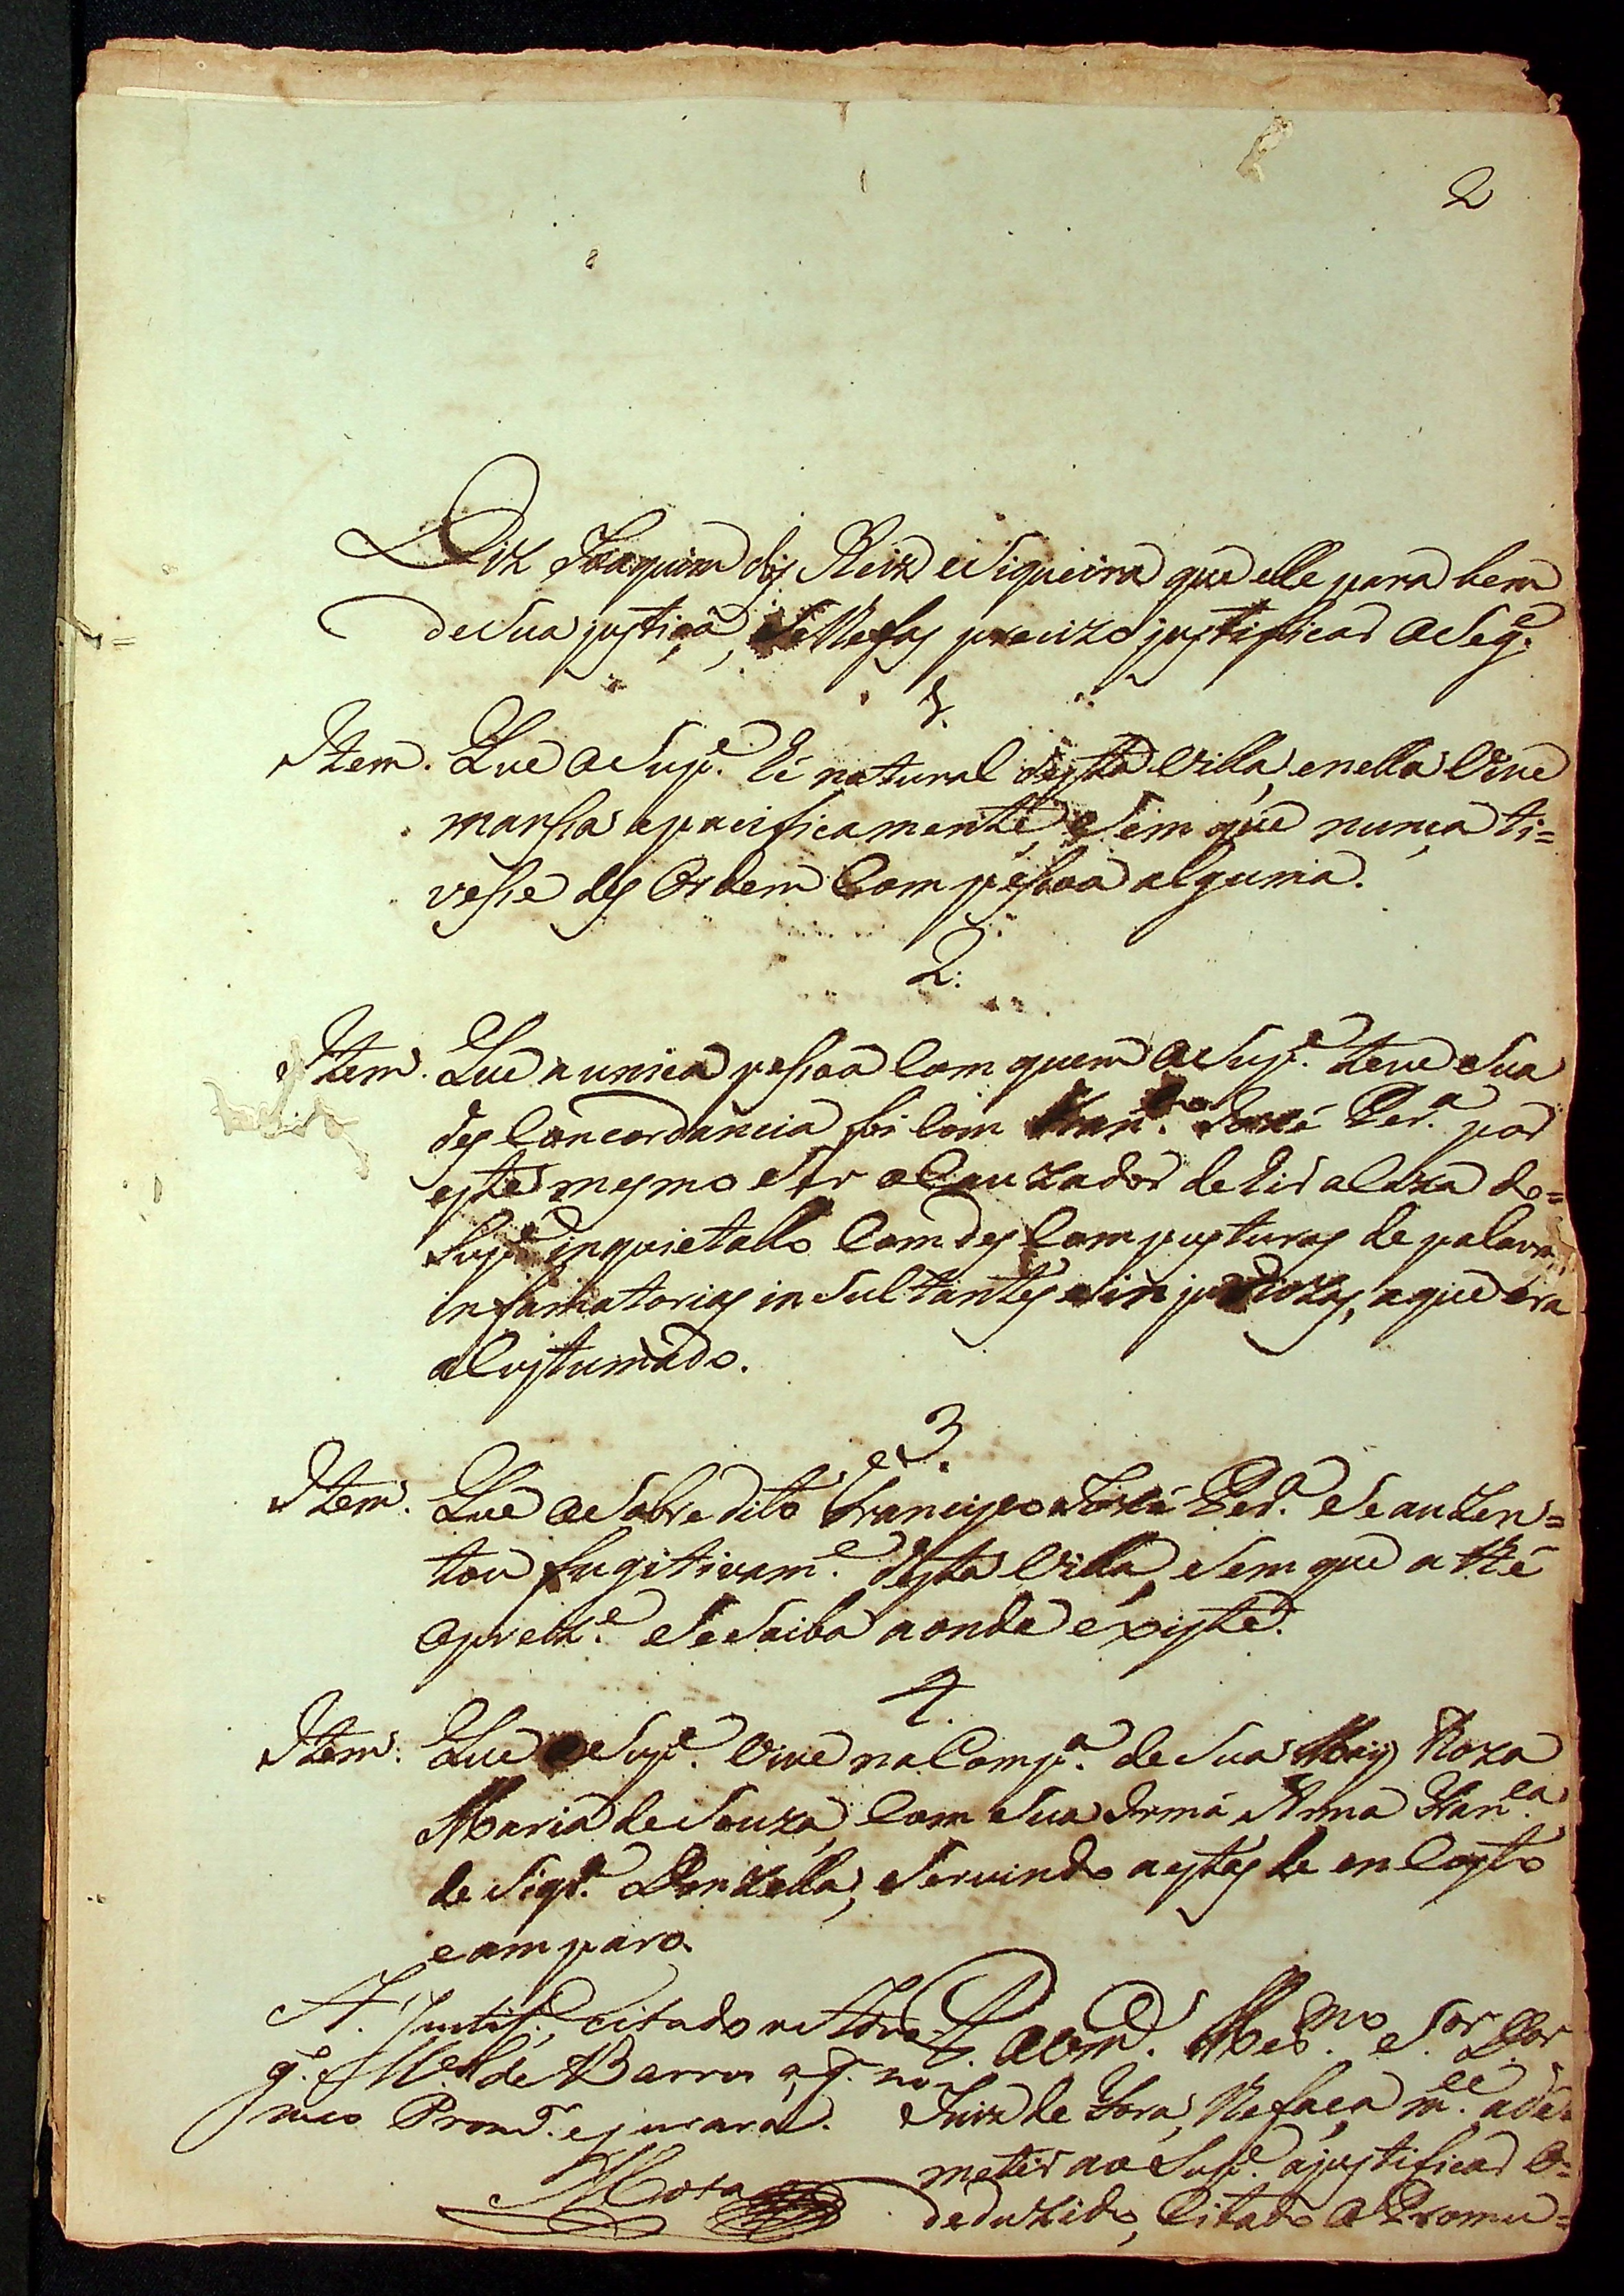 2
Diz Joaquim dos Reiz e Siqueira que elle para bem
de sua justiça, Se lhe faz precizo justificar o seg.e
1.
Item. Que o Sup.e hé natural desta Villa, e nella vive
mansa e pacificamente, e sem que nunca ti=
vesse des Ordem Com pessoa alguma.
2.
Item. Que a unica pessoa Com quem o Sup.e teve sua
des Concordancia foi Com Fran.co José Per.a por
este mesmo ser o Cauzador de hir a Caza do=
Sup.e inquietallo Com des Composturas de palavras
infamatorias insultantes e injuriozas, a que era
a Costumado.
3.
Item. Que o Sobredito Francisco José Per.a Se auzen=
tou fugitivam.e desta Villa, e sem que a thé
o prez.e Se Saiba aonde existe.
4.
Item. Que o Sup.e Vive na Comp.a de Sua May Roza
Maria de Souza, Com sua Irmá Anna Fran.ca
de Siqr.a Donzella, e Servindo a estas de en Costo
e amparo.
A. Justif.e, citado o Adv.o
P. a Vm.ce Mer.mo S.or D.or
g.e M.el de Barros q. no
Juiz de Fora, lhe faça m.ce ade=
meo Promd.r e jurará.
metir ao Sup.e a justificar o=
Mota
deduzido, Citado o Promu=